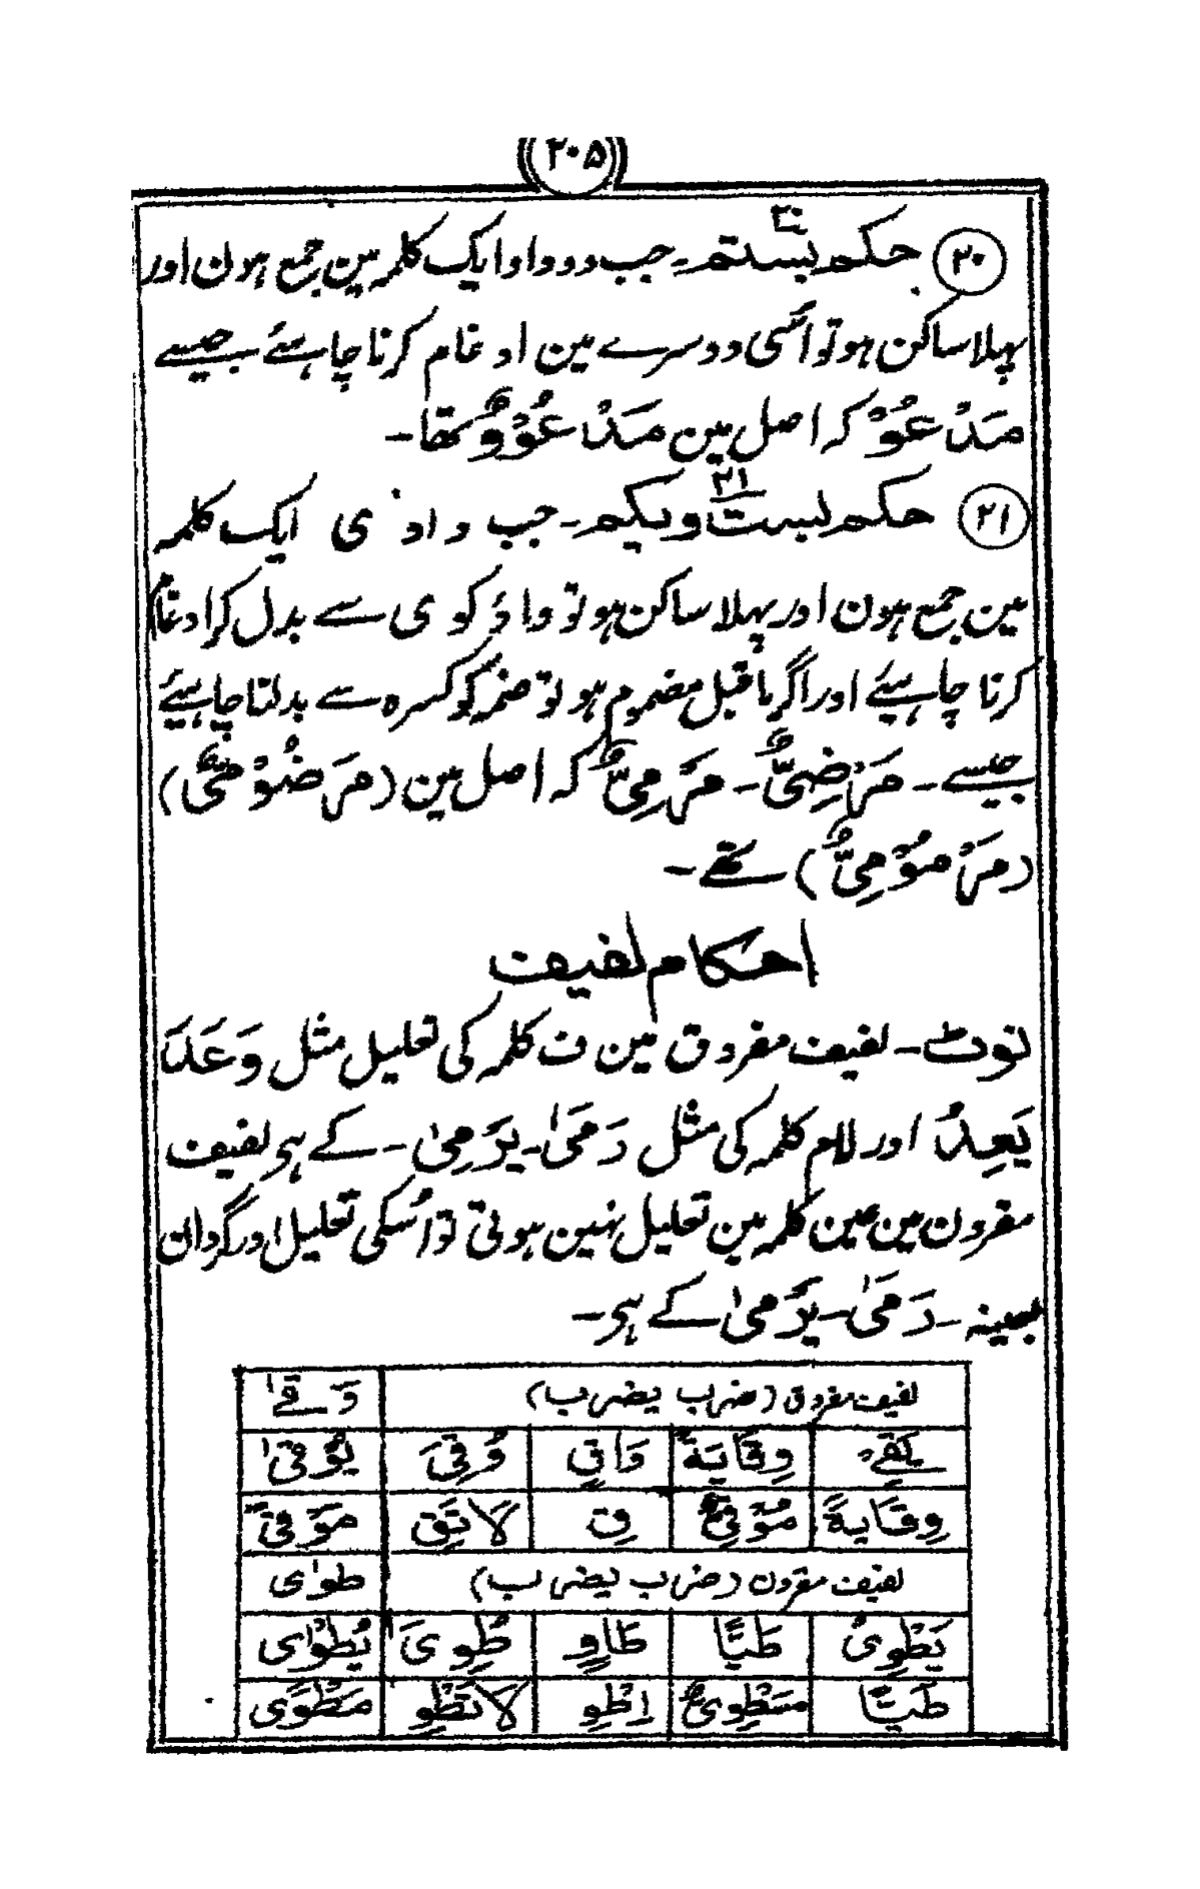 ۲۰۵
۲۰ حکم بستم۲۰۔ جب دو واو ایک کلمہ مین جمع ہون اور
پہلا ساکن ہو تو اُسی دوسرے مین ادغام کرنا چاہئے جیسے
مَدْعُوْ کہ اصل مین مَدْعُوْوٌ تھا۔
۲۱ حکم بست و یکم۲۱۔ جب واو۔ ی ایک کلمہ
مین جمع ہون اور پہلا ساکن ہو تو واؤ کو ی سے بدل کر ادغام
کرنا چاہیئے اور اگر ماقبل مضموم ہو تو ضمہ کو کسرہ سے بدلنا چاہیئے
جیسے۔ مَرْضِیٌّ۔ مَرْمِیٌّ کہ اصل مین (مَرْضُوْیٌ)
(مَرْمُوْیٌ) تھے۔
احکام لفیف
نوٹ۔ لفیف مفروق مین ف کلمہ کی تعلیل مثل وَعَدَ
یَعِدُ اور لام کلمہ کی مثل رَمَیٰ۔ یَرْمِیْ۔ کے ہے لفیف
مقرون مین عین کلمہ مین تعلیل نہین ہوتی تو اُسکی تعلیل اور گردان
بعینہ۔ رَمَیٰ۔ یَرْمِیْ کے ہے۔
لفیف مفروق (ضرب یضرب) وَقیٰ
یَقِیْ وِقَایَةً وَاقٍ وُقِیَ یُوْقیٰ
وِقَایَةً مُوْقیً قِ لَا تَقِ مَوْقیً
لفیف مقرون (ضرب یضرب) طویٰ
یَطْوِیْ طَیًّا طَاوٍ طُوِیَ یُطْویٰ
طَیًّا مَطْوِیٌّ اِطْوِ لَا تَطْوِ مَطْوًی